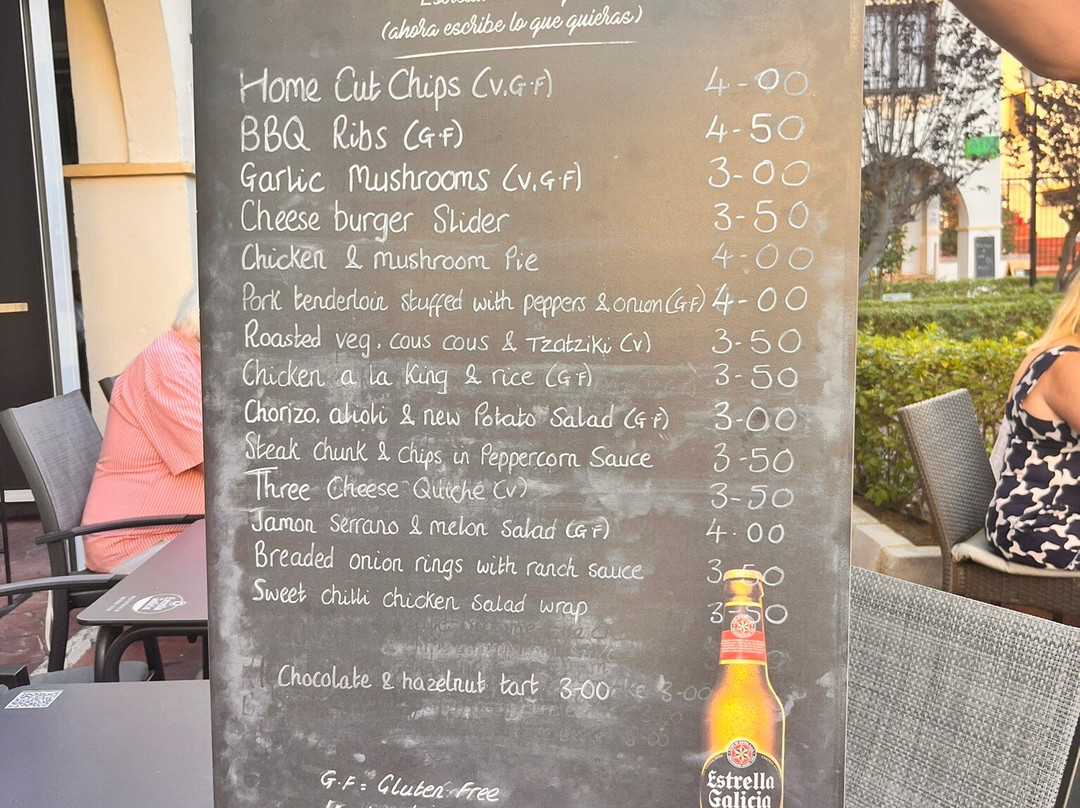 (ahora escribe lo que quieras)
Home Cut Chips (V.G.F) 4-00
BBQ Ribs (G.F) 4-50
Garlic Mushrooms (V.G.F) 3-00
Cheese burger Slider 3-50
Chicken & mushroom Pie 4-00
Pork tenderloin stuffed with peppers & onion (G.F) 4-00
Roasted veg, cous cous & Tzatziki (V) 3-50
Chicken a la King & rice (G.F) 3-50
Chorizo, alioli & new Potato Salad (G.F) 3-00
Steak Chunk & chips in Peppercorn Sauce 3-50
Three Cheese Quiche (V) 3-50
Jamon Serrano & melon Salad (G.F) 4.00
Breaded onion rings with ranch sauce 3-50
Sweet chilli chicken Salad wrap 3-50
Chocolate & hazelnut tart 3-00
G.F = Gluten free
Estrella
Galicia